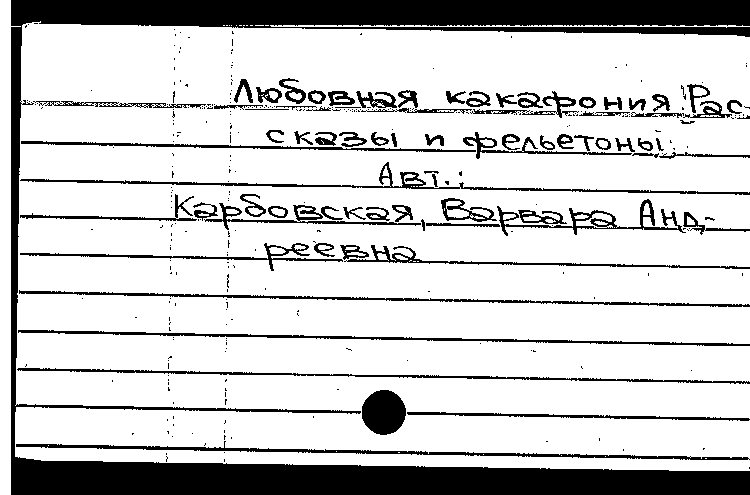 Любовная какафония. Рас-
сказы и фельетоны.
Авт.:
Карбовская, Варвара Анд-
реевна